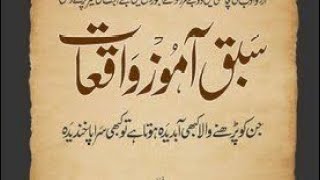 سبق آموز واقعات
جن کو پڑھنے والا کبھی آبدیدہ ہوتا ہے تو کبھی سراپا خندیدہ